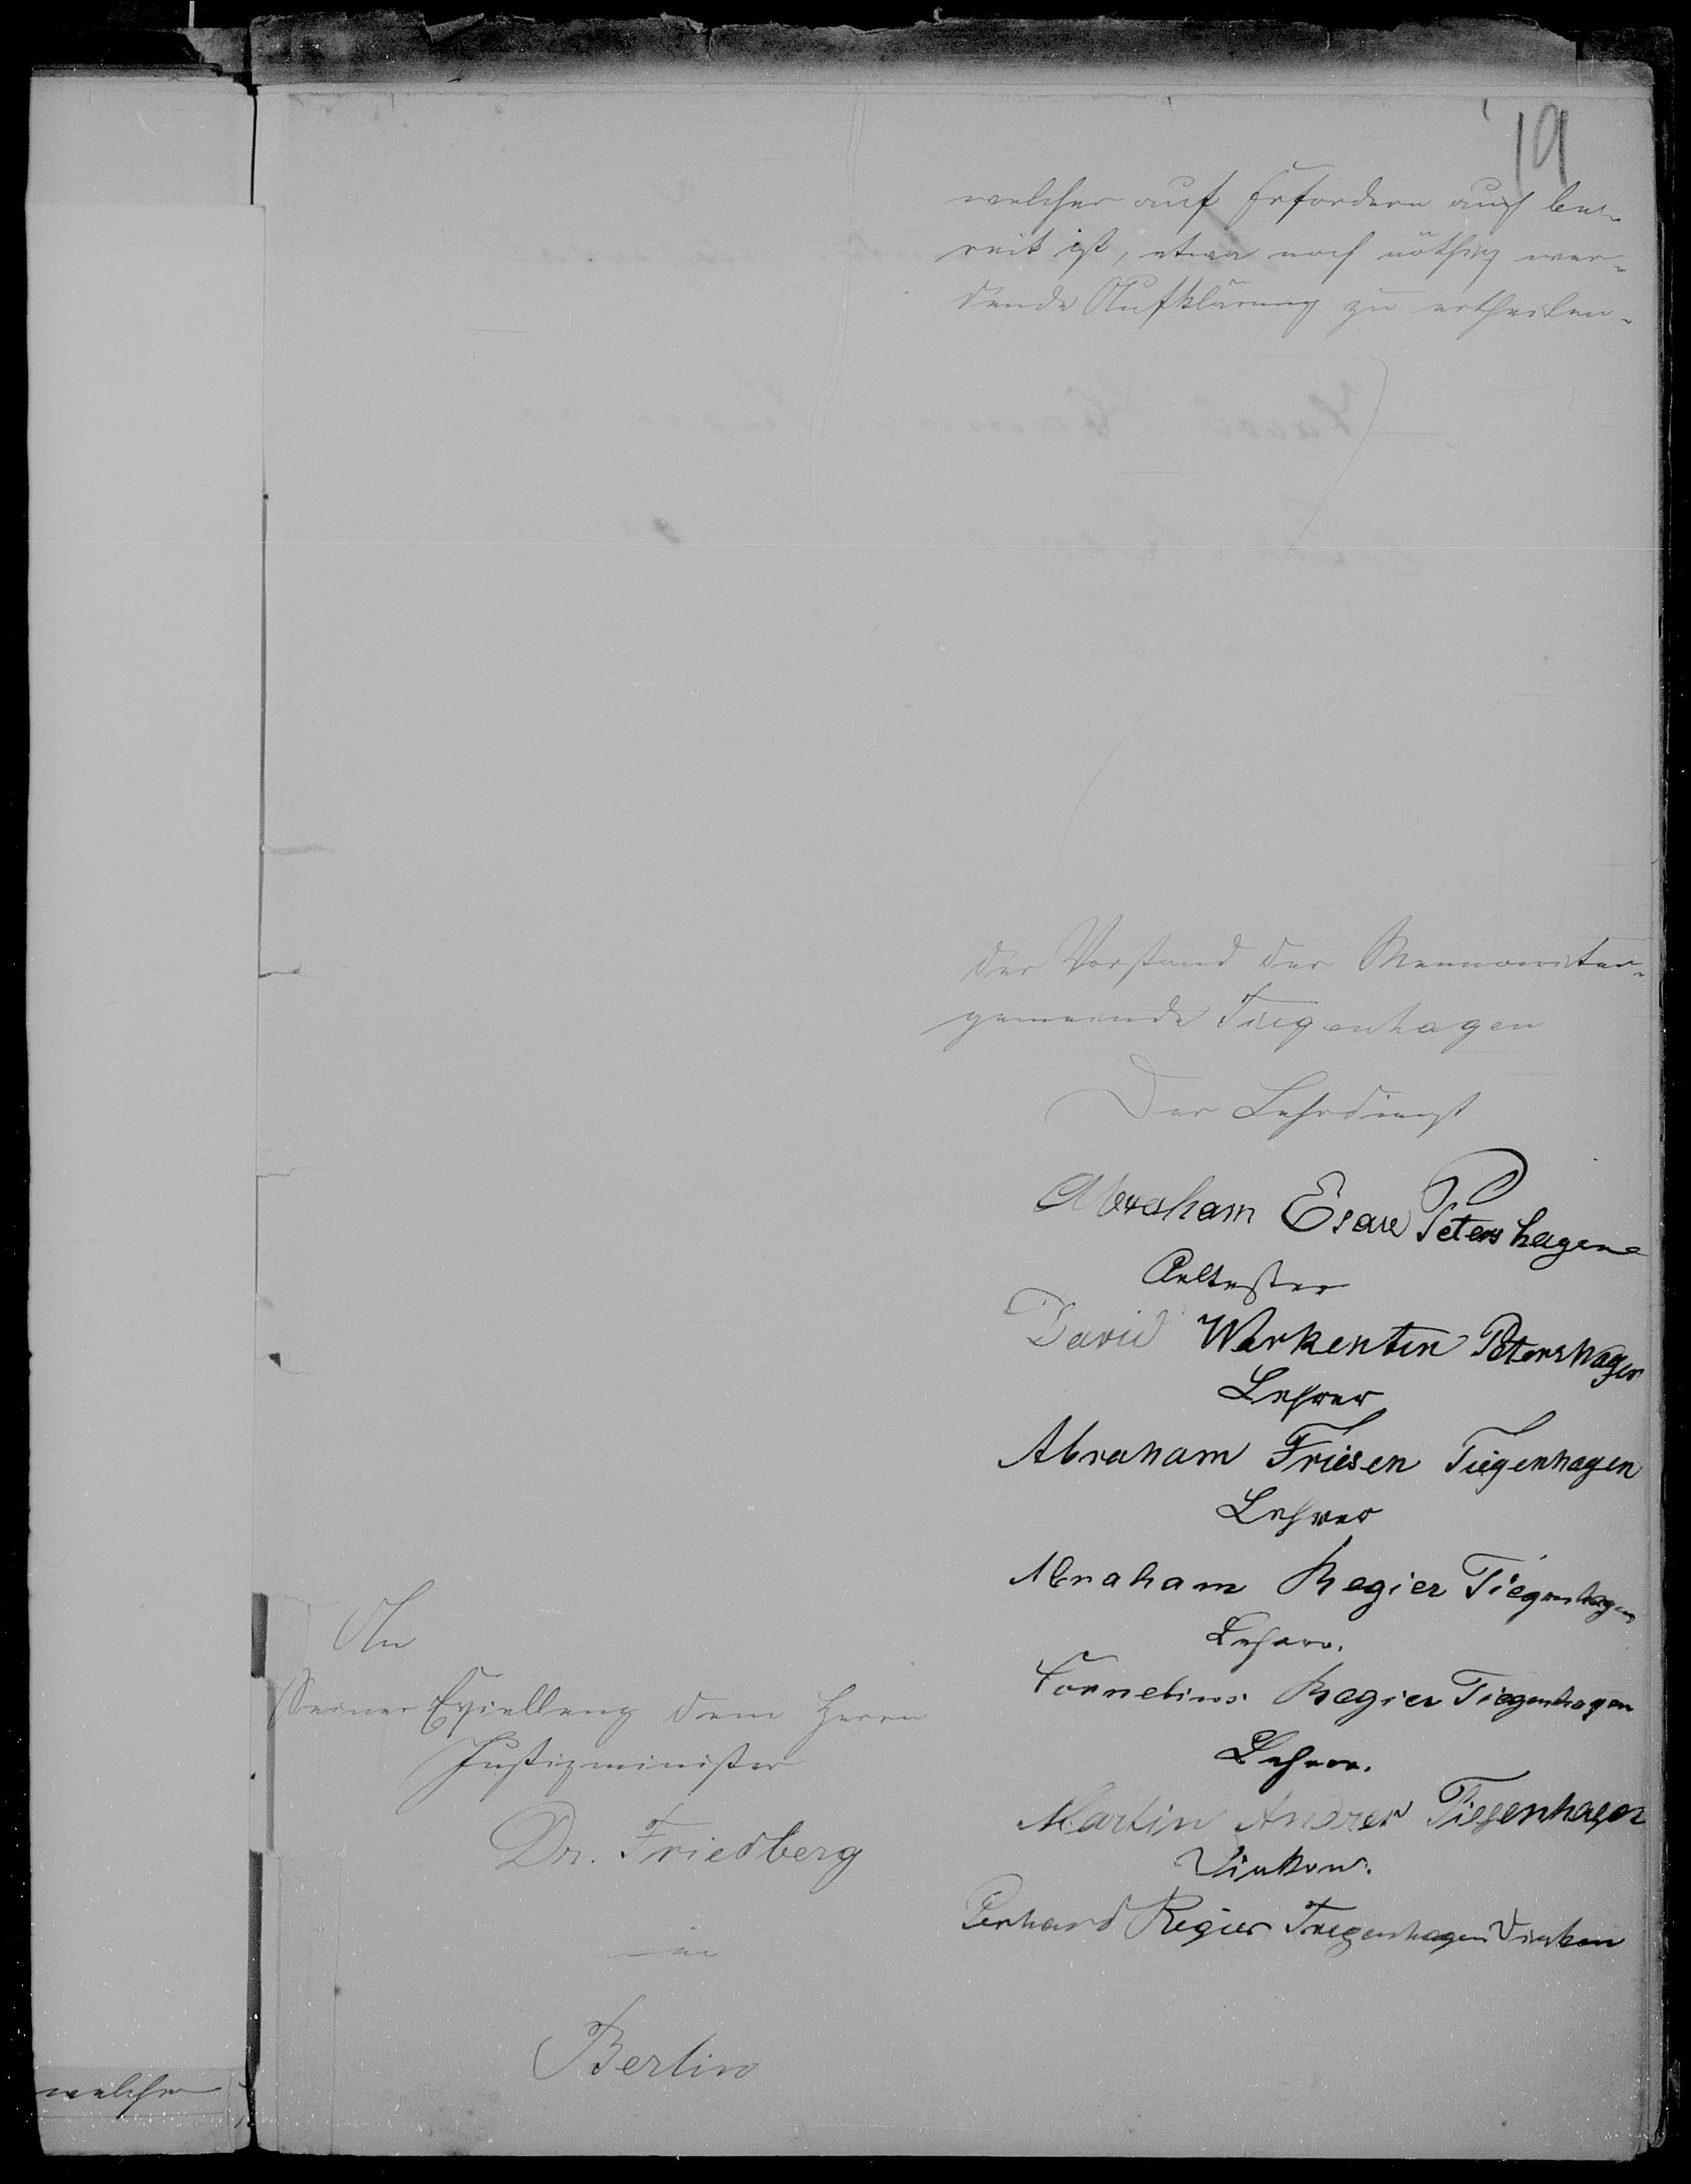 19
welcher auf Erfordern auch be-
reit ist, etwa noch nöthig wer-
dende Aufklärung zu ertheilen.
der Vorstand der Mennoniten-
gemeinde Tiegenhagen
Der Lehrdienst
Abraham Esau Petershagen
Aeltester
David Warkentin Petershagen
Lehrer
Abraham Friesen Tiegenhagen
Lehrer
Abraham Regier Tiegenhagen
Lehrer.
Cornelius Regier Tiegenhagen
Lehrer.
Martin Andres Tiegenhagen
Diakon.
Gerhard Regier Tiegenhagen Diakon
An
Seiner Excellenz dem Herrn
Justizminister
Dr. Friedberg
in
Berlin
welcher